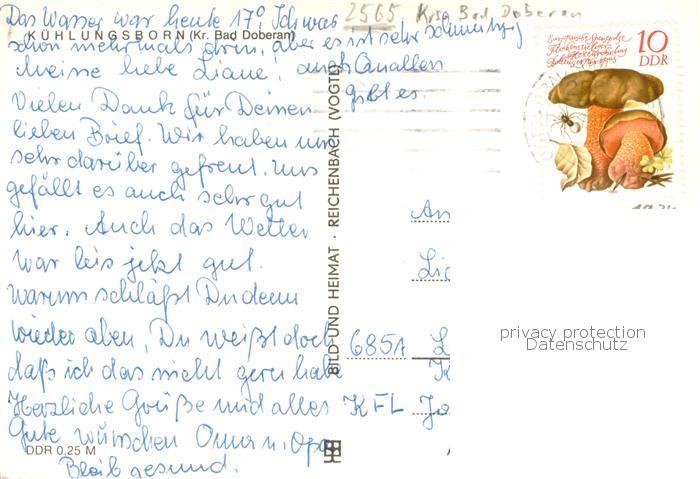 Das Wasser war heute 17°. Ich war
schon mehrmals drin, aber es ist sehr schmutzig
2565 Krs. Bad Doberan
KÜHLUNGSBORN (Kr. Bad Doberan)
Meine liebe Liane! auch Quallen
gibt es.
Vielen Dank für Deinen
lieben Brief. Wir haben uns
sehr darüber gefreut. Uns
gefällt es auch sehr gut
hier. Auch das Wetter
war bis jetzt gut.
Warum schläfst Du denn
wieder oben, Du weißt doch
daß ich das nicht gern habe
Herzliche Grüße und alles
Gute wünschen Oma u. Opa
Bleib gesund.
DDR 0,25 M
BILD UND HEIMAT · REICHENBACH (VOGTL)
10
DDR
An
6851
KFL
privacy protection
Datenschutz